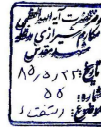 دفتر حضرت آیة الله العظمی
مکارم شیرازی مدظله
مشهد مقدس
تاریخ: ۸۵/۵/۲۳
شماره: ۵۵
موضوع: